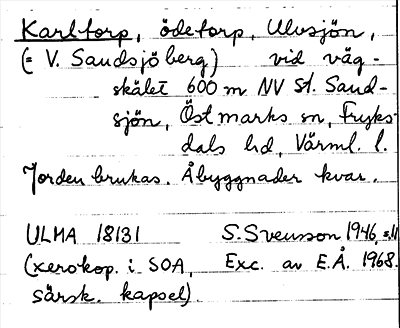 Karltorp, ödetorp, Ulvsjön,
(= V. Sandsjöberg) vid väg-
skälet 600 m NV St. Sand-
sjön, Östmarks sn, Fryks-
dals hd, Värml. l.
Jorden brukas. Åbyggnader kvar.
ULMA 18131 S. Svensson 1946, s.11
(xerokop. i SOA, Exc. av E.Å. 1968.
särsk. kapsel).